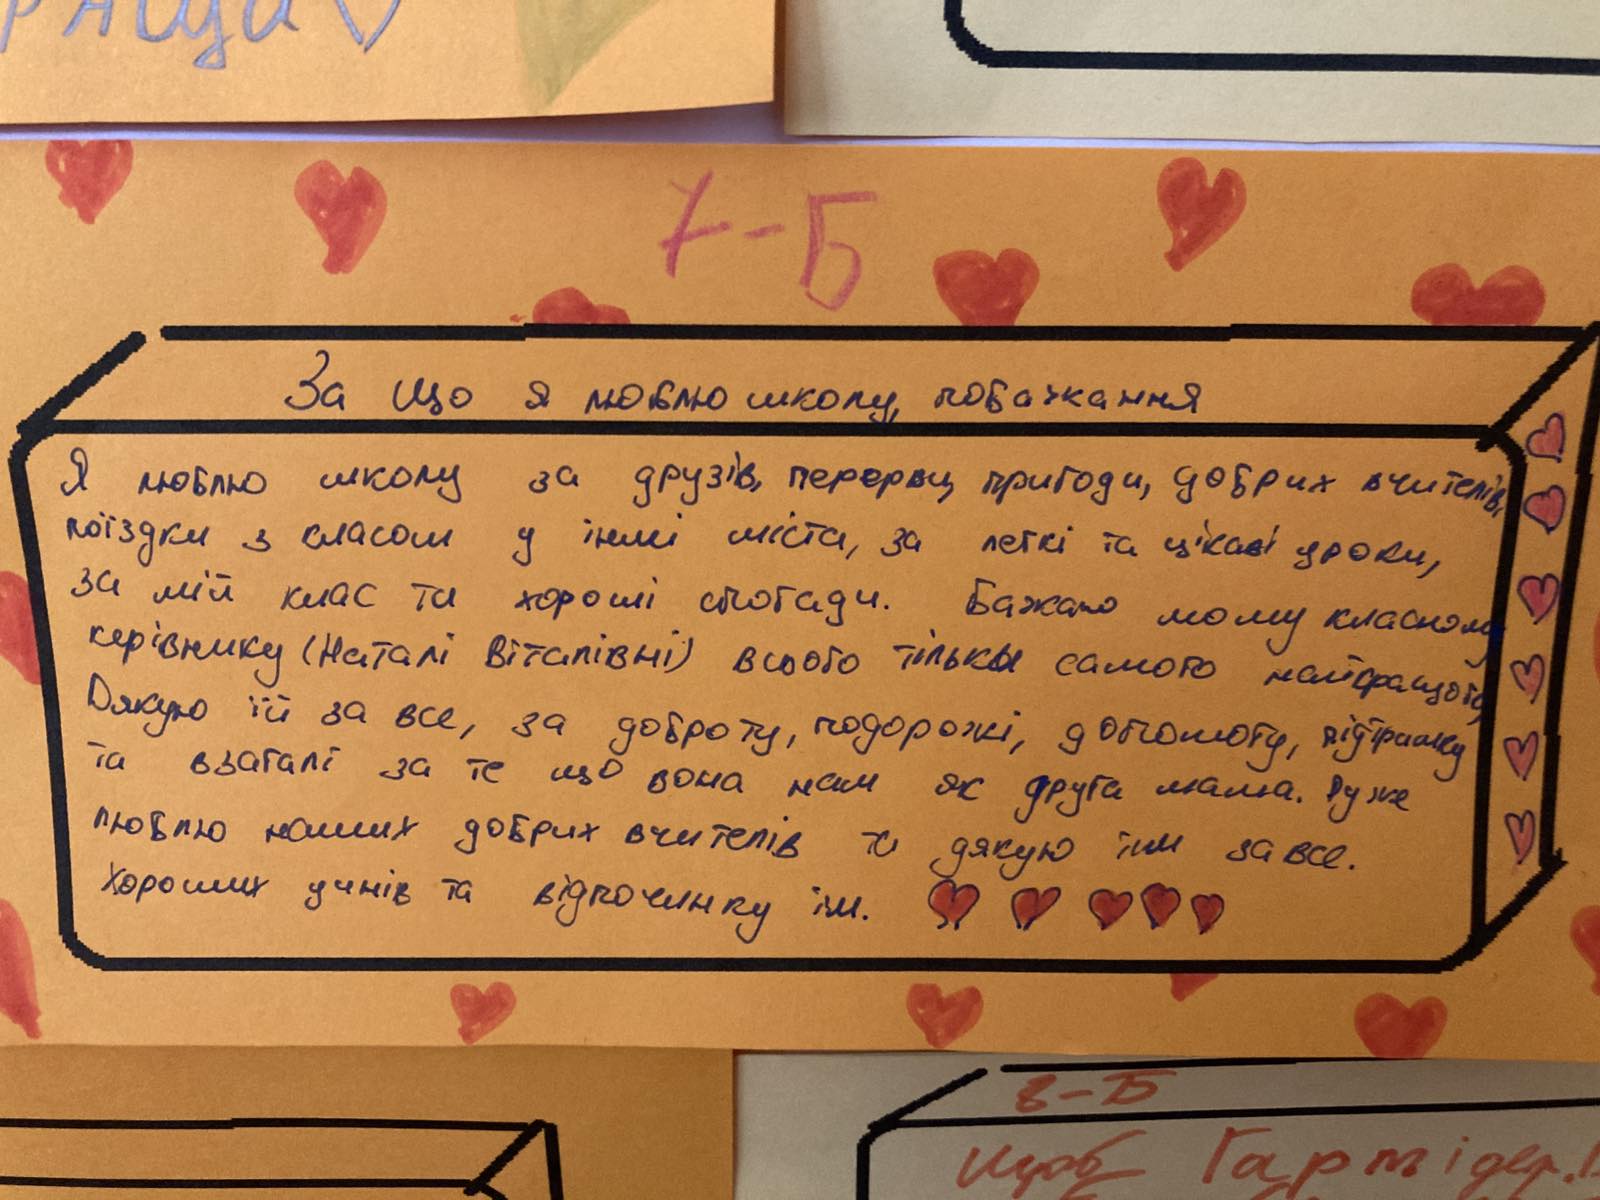 7-Б
За що я люблю школу, побажання
Я люблю школу за друзів, перерви, пригоди, добрих вчителів,
поїздки з класом у інші міста, за легкі та цікаві уроки,
за мій клас та хороші спогади. Бажаю мому класному
керівнику (Наталі Віталівні) всього тільки самого найкращого,
Дякую їй за все, за доброту, подорожі, допомогу, підтримку
та взагалі за те що вона нам як друга мама. Дуже
люблю наших добрих вчителів та дякую їм за все.
Хороших учнів та відпочинку їм.
8-Б
Щоб